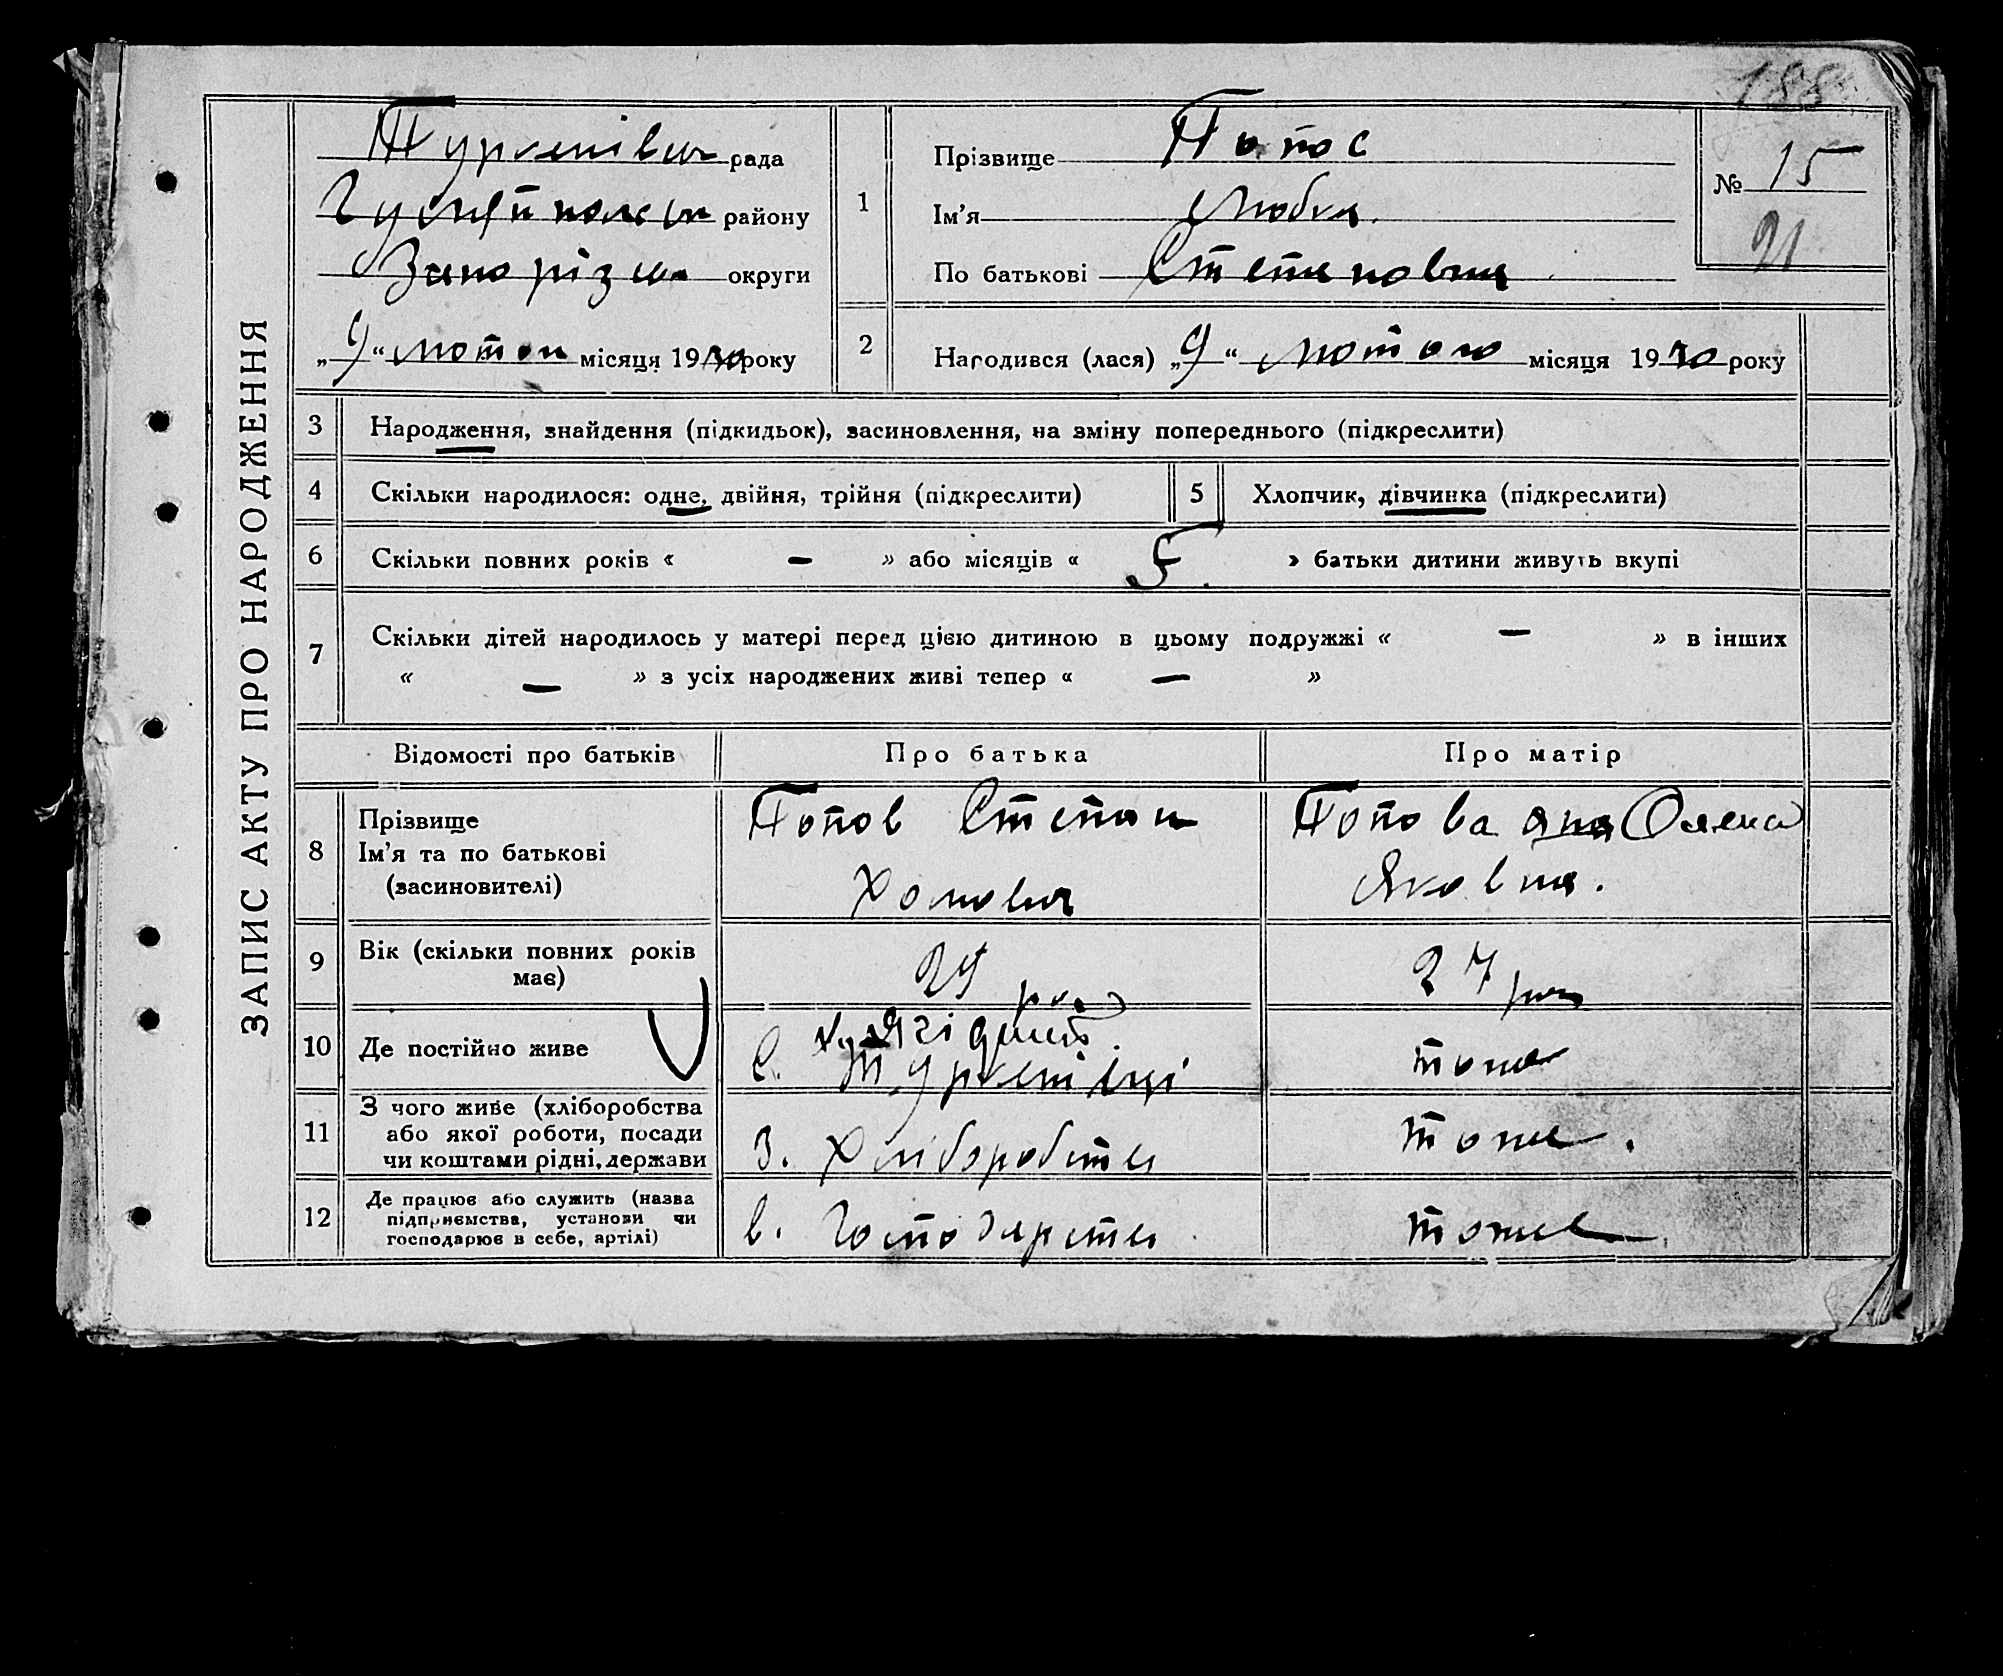 188
ЗАПИС АКТУ ПРО НАРОДЖЕННЯ
Туркенівськ рада
Гуляйпольськ району
Запорізьк округи
„9“ лютого місяця 1930 року
1
Прізвище Попо
Ім'я Любка
По батькові Степановна
№ 15
21
2
Народився (лася) „9“ лютого місяця 1930 року
3 Народження, знайдення (підкидьок), засиновлення, на зміну попереднього (підкреслити)
4 Скільки народилося: одне, двійня, трійня (підкреслити)
5 Хлопчик, дівчинка (підкреслити)
6 Скільки повних років « — » або місяців « 5 » батьки дитини живуть вкупі
7 Скільки дітей народилось у матері перед цією дитиною в цьому подружжі « — » в інших
« — » з усіх народжених живі тепер « — »
Відомості про батьків Про батька Про матір
8 Прізвище
Ім'я та по батькові
(засиновителі)
Попов Степан
Хомович
Попова Олена
Яковна.
9 Вік (скільки повних років
має)
29 рок
27 рок
10 Де постійно живе
с. Туркенівці
тоже
11 З чого живе (хліборобства
або якої роботи, посади
чи коштами рідні, держави
З. Хліборобства
тоже.
12 Де працює або служить (назва
підприємства, установи чи
господарює в себе, артілі)
в. Господарства
тоже